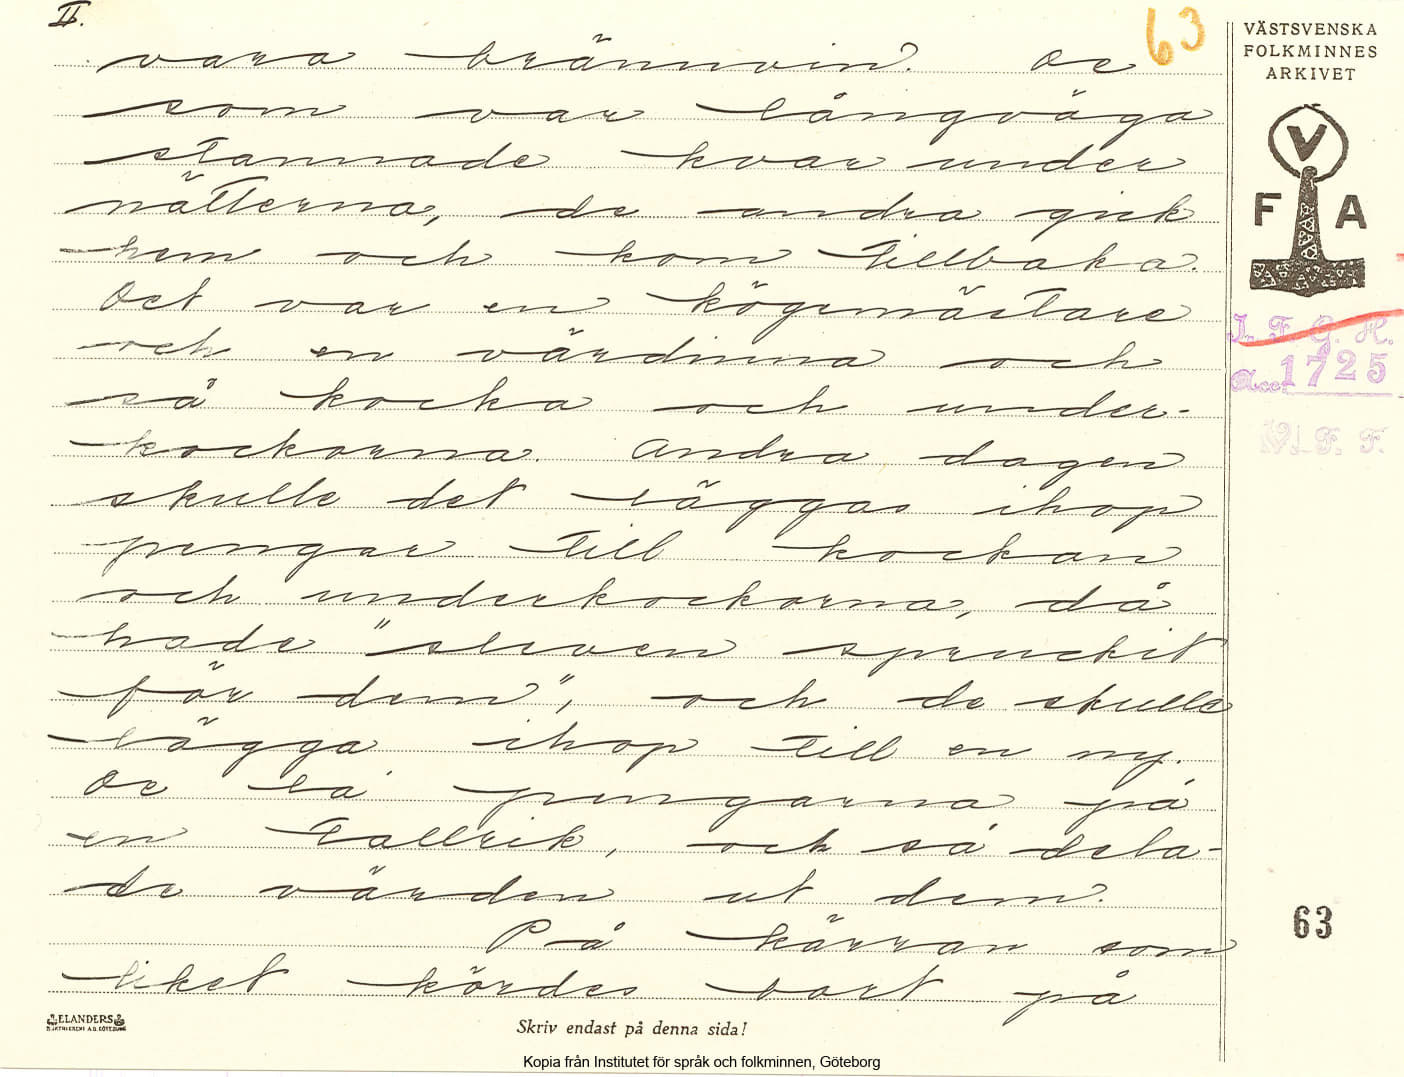 II.
63
VÄSTSVENSKA
FOLKMINNES
ARKIVET
V
F A
I. F. G. H.
Acc. 1725
V. F. F.
vara brännvin. De
som var långväga
stannade kvar under
nätterna, de andra gick
hem och kom tillbaka.
Det var en kögemästare
och en värdinna och
så kocka och under-
kockorna. Andra dagen
skulle det läggas ihop
pengar till kockan
och underkockorna, då
hade "sleven spruckit
för dem", och de skulle
lägga ihop till en ny.
De la pengarna på
en tallrik, och så dela-
de värden ut dem.
På kärran som
liket kördes bort på
63
ELANDERS
Skriv endast på denna sida!
Kopia från Institutet för språk och folkminnen, Göteborg